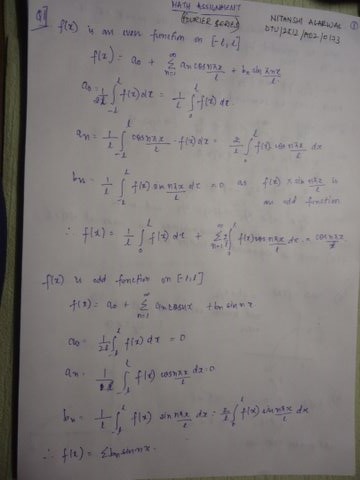 MATH ASSIGNMENT
(FOURIER SERIES)
NITANSHI AGARWAL ①
DTU/2K12/
Q1] f(x) is an even function on [-l, l]
f(x) = a₀ + ∑_{n=1}^{∞} an cos nπx/l + bn sin πnx/l
a₀ = 1/2l ∫_{-l}^{l} f(x) dx = 1/l ∫_0^l f(x) dx.
an = 1/l ∫_{-l}^{l} cos nπx/l · f(x) dx = 2/l ∫_0^l f(x) cos nπx/l dx
bn = 1/l ∫_{-l}^{l} f(x) sin nπx/l dx = 0 as f(x) × sin nπx/l is
an odd function
∴ f(x) = 1/l ∫_0^l f(x) dx + ∑_{n=1}^{∞} 2/l ∫_0^l f(x) cos nπx/l dx · cos nπx/l
f(x) is odd function on [-l, l]
f(x) = a₀ + ∑_{n=1}^{∞} an cos nx + bn sin nx
a₀ = 1/2l ∫_{-l}^{l} f(x) dx = 0
an = 1/l ∫_{-l}^{l} f(x) cos nπx/l dx = 0
bn = 1/l ∫_{-l}^{l} f(x) sin nπx/l dx = 2/l ∫_0^l f(x) sin nπx/l dx
∴ f(x) = ∑ bn sin nx.